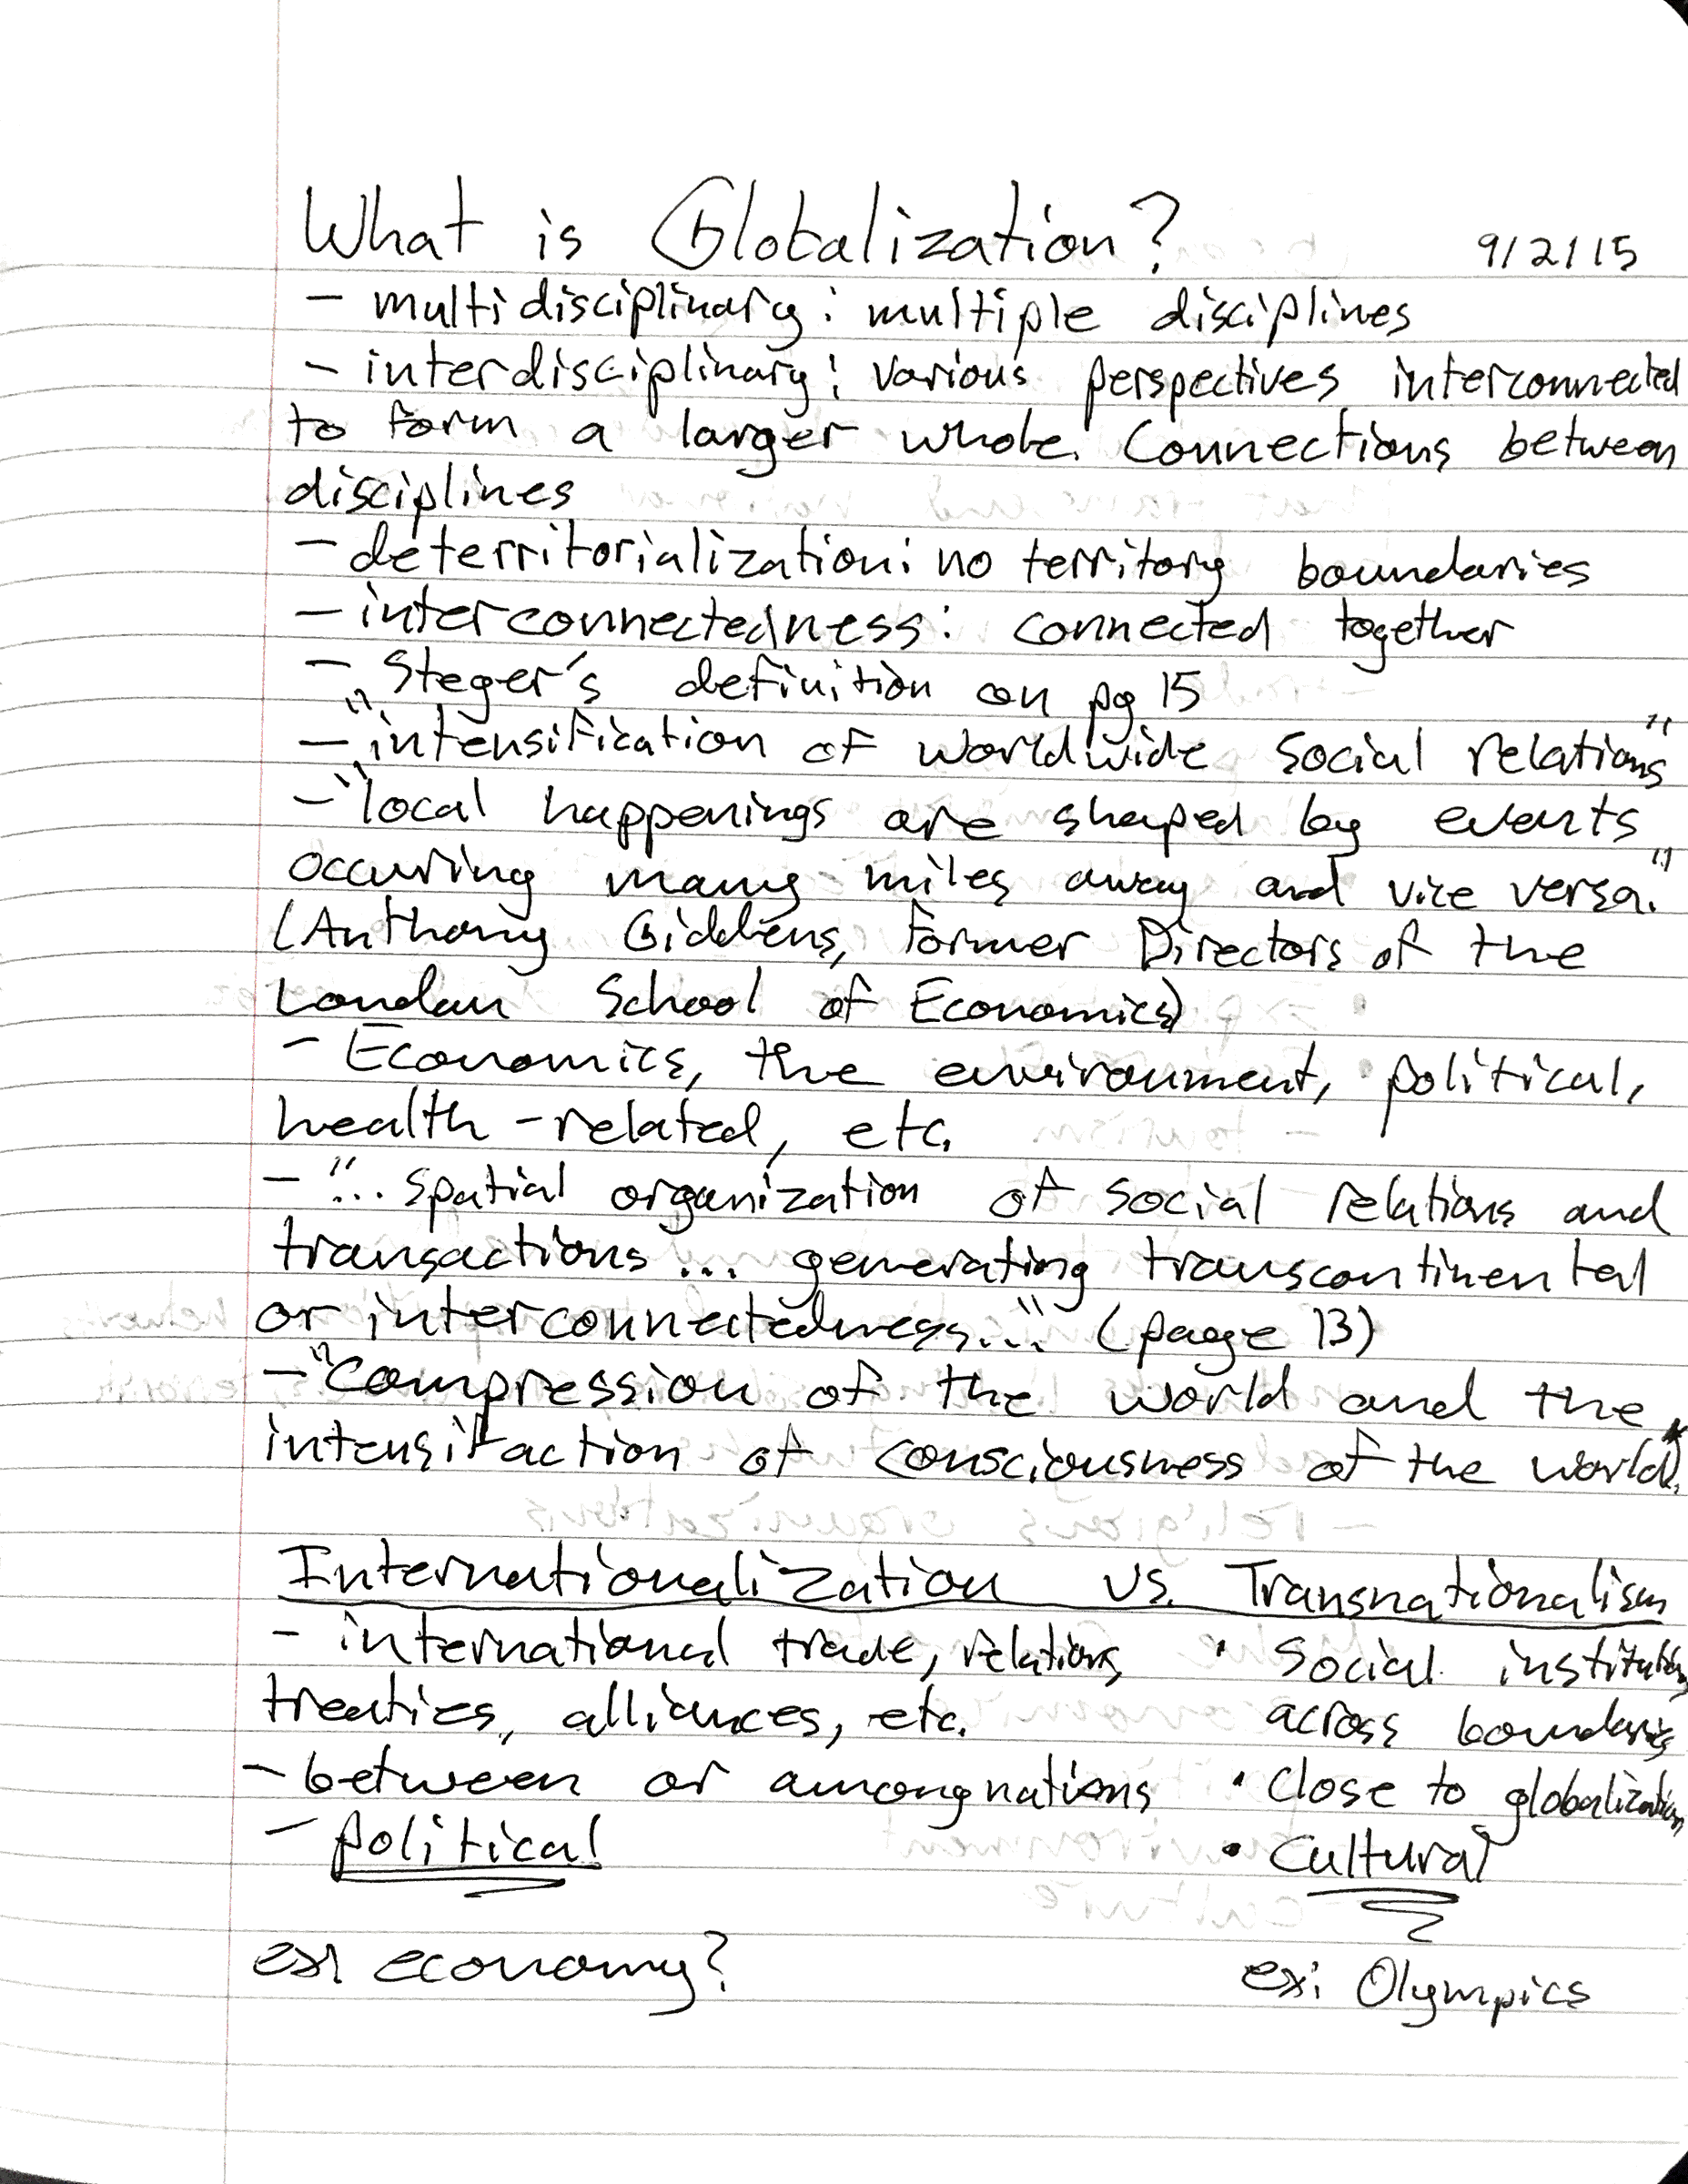 What is Globalization? 9/2/15
- multidisciplinary: multiple disciplines
- interdisciplinary: various perspectives interconnected
to form a larger whole. Connections between
disciplines
- deterritorialization: no territory boundaries
- interconnectedness: connected together
- Steger's definition on pg 15
- "intensification of worldwide social relations"
- "local happenings are shaped by events
occuring many miles away and vice versa."
(Anthony Giddens, Former Directors of the
London School of Economics)
- Economics, the environment, political,
health-related, etc.
- "... spatial organization of social relations and
transactions ... generating transcontinental
or interconnectedness..." (page 13)
- "Compression of the world and the
intensifaction of consciousness of the world."
Internationalization vs. Transnationalism
- international trade, relations, • Social institutions
treaties, alliances, etc. across boundaries
- between or among nations • Close to globalization
- political • Cultural
ex: economy? ex: Olympics